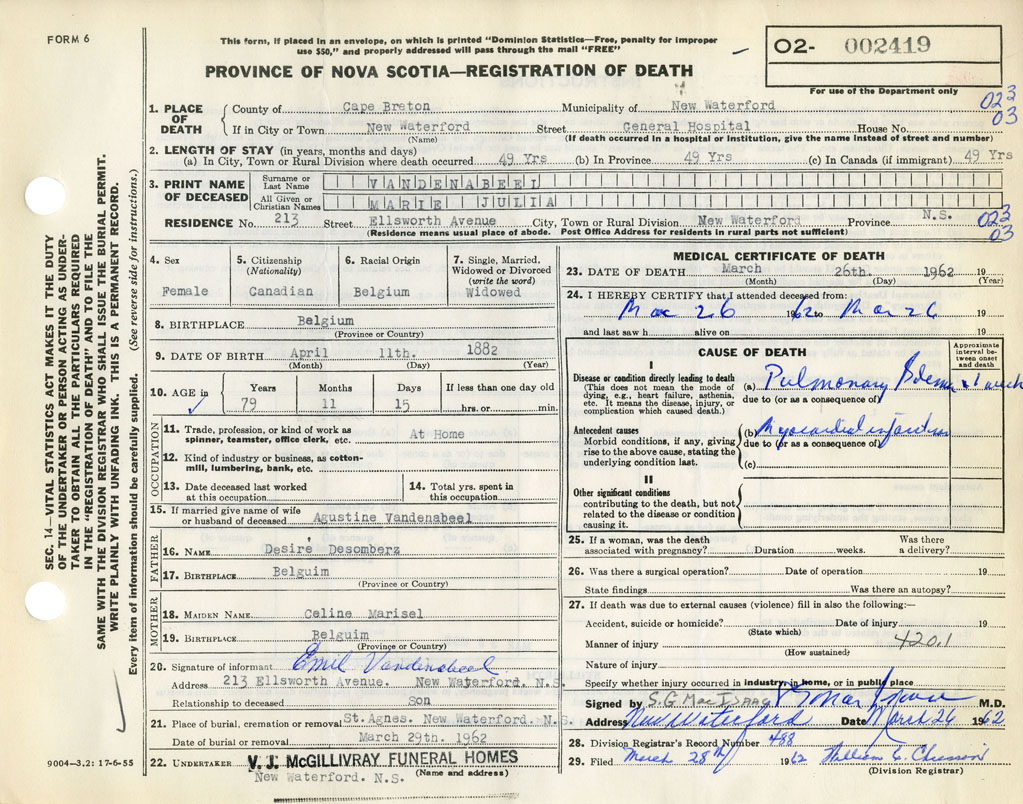 FORM 6
This form, if placed in an envelope, on which is printed "Dominion Statistics—Free, penalty for improper
use $50," and properly addressed will pass through the mail "FREE"
PROVINCE OF NOVA SCOTIA—REGISTRATION OF DEATH
02- 002419
For use of the Department only
023
03
1. PLACE OF DEATH
County of Cape Breton Municipality of New Waterford
If in City or Town New Waterford Street General Hospital House No.
(Name) (If death occurred in a hospital or institution, give the name instead of street and number)
2. LENGTH OF STAY (in years, months and days)
(a) In City, Town or Rural Division where death occurred 49 Yrs (b) In Province 49 Yrs (c) In Canada (if immigrant) 49 Yrs
3. PRINT NAME OF DECEASED
Surname or Last Name VANDENABEEL
All Given or Christian Names MARIE JULIA
RESIDENCE No. 213 Street Ellsworth Avenue City, Town or Rural Division New Waterford Province N.S.
(Residence means usual place of abode. Post Office Address for residents in rural parts not sufficient)
023
03
4. Sex
Female
5. Citizenship
(Nationality)
Canadian
6. Racial Origin
Belgium
7. Single, Married,
Widowed or Divorced
(write the word)
Widowed
8. BIRTHPLACE Belgium
(Province or Country)
9. DATE OF BIRTH April 11th. 1882
(Month) (Day) (Year)
10. AGE in
Years Months Days If less than one day old
79 11 15 hrs. or min.
OCCUPATION
11. Trade, profession, or kind of work as
spinner, teamster, office clerk, etc. At Home
12. Kind of industry or business, as cotton-
mill, lumbering, bank, etc.
13. Date deceased last worked
at this occupation
14. Total yrs. spent in
this occupation
15. If married give name of wife
or husband of deceased Agustine Vandenabeel
FATHER
16. NAME Desire' Desomberz
17. BIRTHPLACE Belguim
(Province or Country)
MOTHER
18. MAIDEN NAME Celine Marisel
19. BIRTHPLACE Belguim
(Province or Country)
20. Signature of informant Emil Vandenabeel
Address 213 Ellsworth Avenue. New Waterford. N.S.
Relationship to deceased Son
21. Place of burial, cremation or removal St. Agnes. New Waterford. N.S.
Date of burial or removal March 29th. 1962
22. UNDERTAKER V. J. McGILLIVRAY FUNERAL HOMES
New Waterford. N.S. (Name and address)
MEDICAL CERTIFICATE OF DEATH
23. DATE OF DEATH March 26th. 1962 19
(Month) (Day) (Year)
24. I HEREBY CERTIFY that I attended deceased from:
Mar 26 1962 to Mar 26 19
and last saw h alive on 19
CAUSE OF DEATH
Approximate
interval be-
tween onset
and death
I
Disease or condition directly leading to death
(This does not mean the mode of
dying, e.g., heart failure, asthenia,
etc. It means the disease, injury, or
complication which caused death.)
(a) Pulmonary Edema 1 week
due to (or as a consequence of)
Antecedent causes
Morbid conditions, if any, giving
rise to the above cause, stating the
underlying condition last.
(b) Myocardial infarction
due to (or as a consequence of)
(c)
II
Other significant conditions
contributing to the death, but not
related to the disease or condition
causing it.
25. If a woman, was the death
associated with pregnancy? Duration weeks. Was there
a delivery?
26. Was there a surgical operation? Date of operation 19
State findings Was there an autopsy?
27. If death was due to external causes (violence) fill in also the following:—
Accident, suicide or homicide? Date of injury 19
(State which)
Manner of injury 420.1
(How sustained)
Nature of injury
Specify whether injury occurred in industry, in home, or in public place
Signed by S.G MacIsaac M.D.
Address New Waterford Date March 26 1962
28. Division Registrar's Record Number 488
29. Filed March 28th 1962
(Division Registrar)
SEC. 14—VITAL STATISTICS ACT MAKES IT THE DUTY
OF THE UNDERTAKER OR PERSON ACTING AS UNDER-
TAKER TO OBTAIN ALL THE PARTICULARS REQUIRED
IN THE "REGISTRATION OF DEATH" AND TO FILE THE
SAME WITH THE DIVISION REGISTRAR WHO SHALL ISSUE THE BURIAL PERMIT.
WRITE PLAINLY WITH UNFADING INK. THIS IS A PERMANENT RECORD.
Every item of information should be carefully supplied. (See reverse side for instructions.)
9004—3.2: 17-6-55